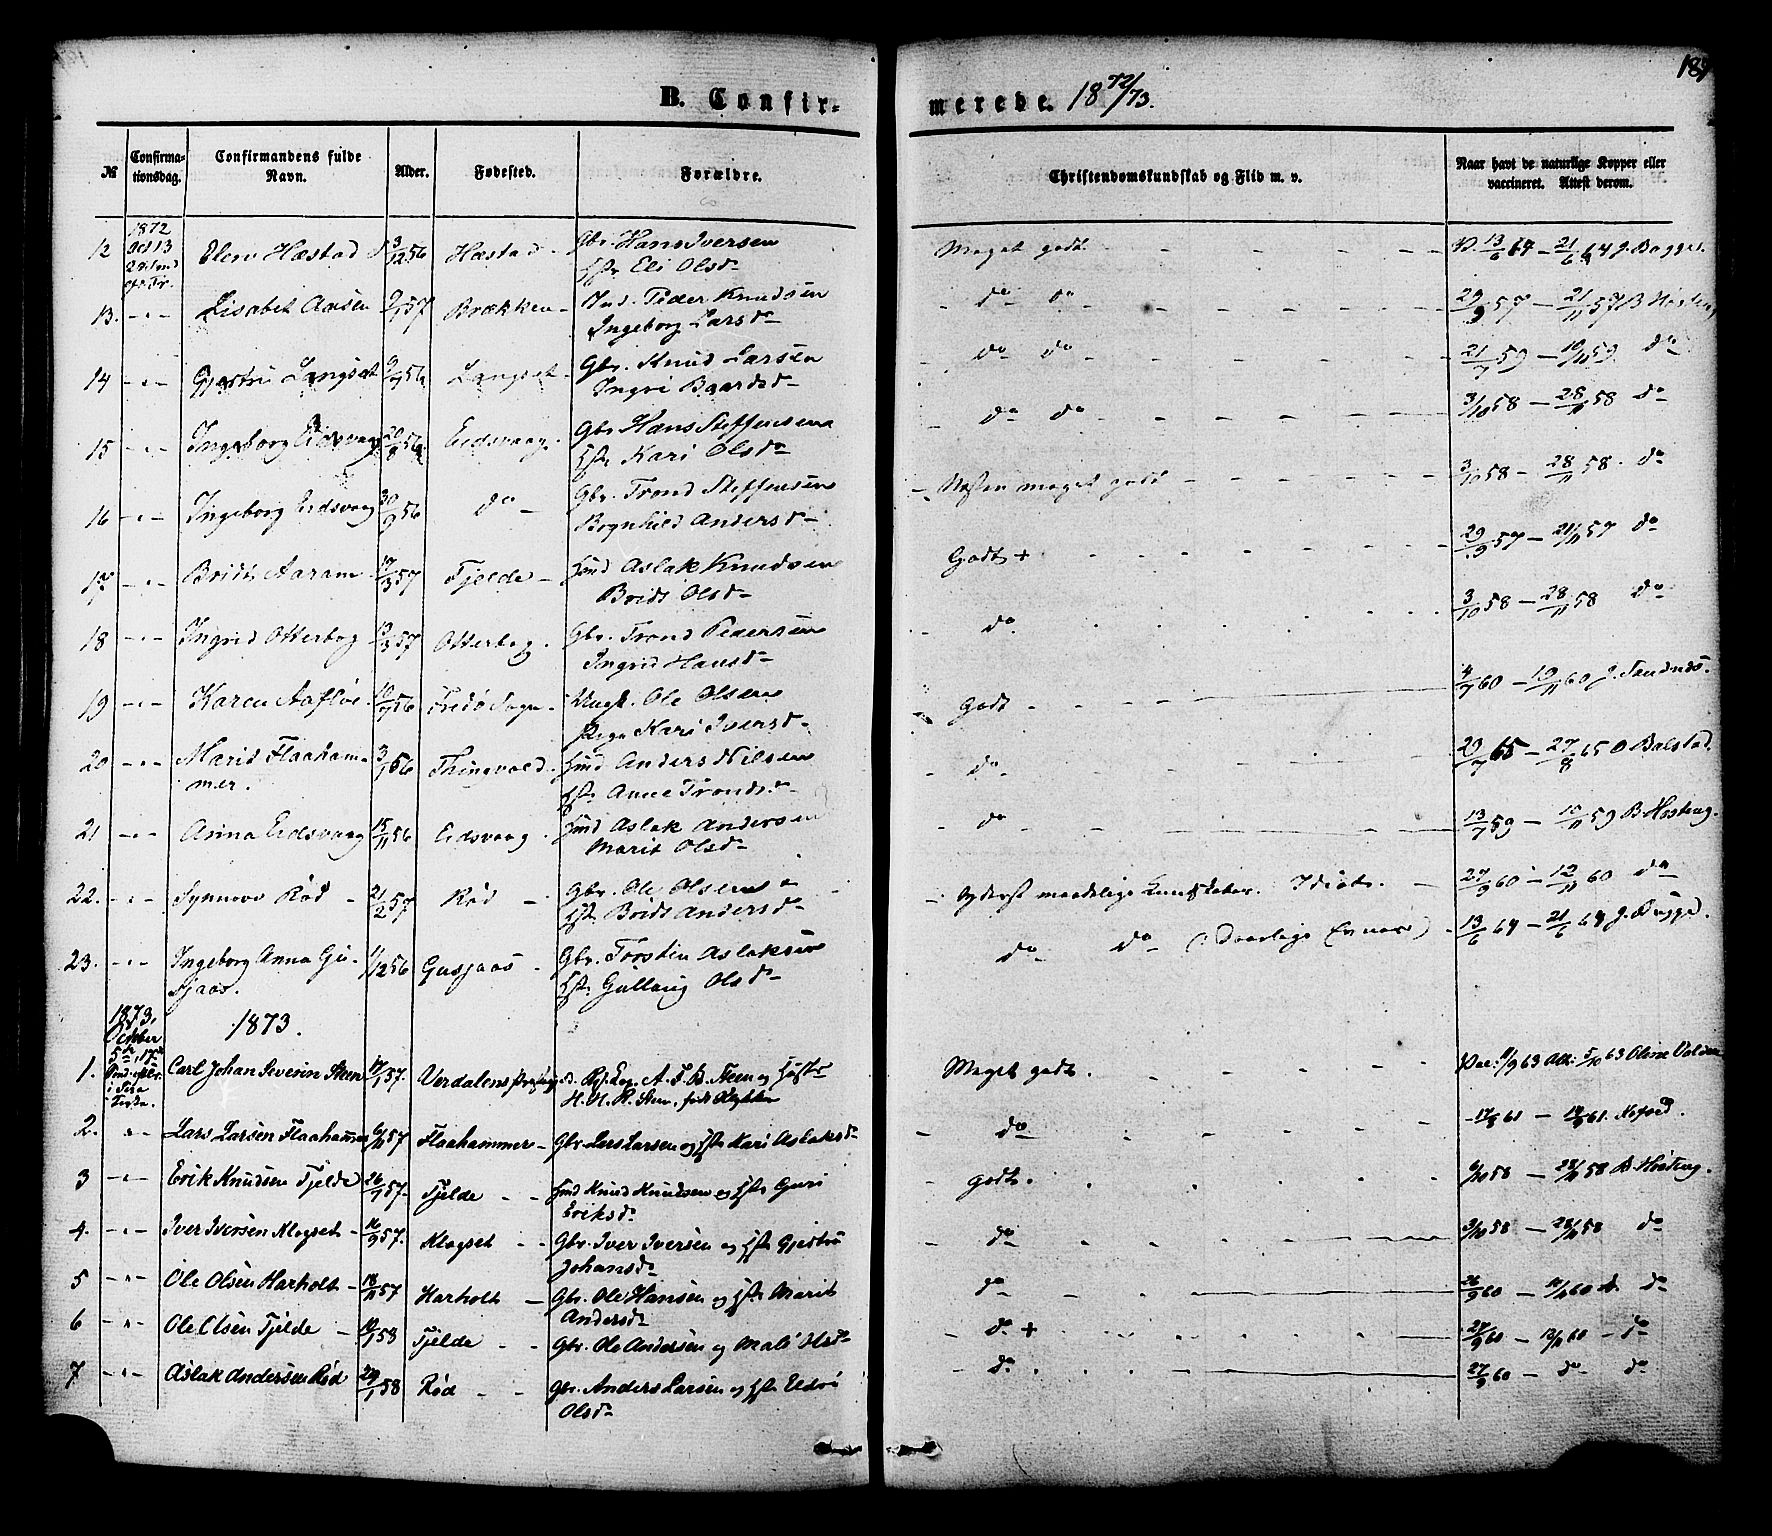 189
B. Confirmerede. 18 72/73.
№ Confirmationsdag. Confirmandens fulde Navn. Alder. Fødested. Forældre. Christendomskundskab og Flid m. v. Naar havt de naturlige Kopper eller vaccineret. Attest derom.
12 1872 Oct 13 Hæstad 3/12 56 Hæstad Gbr. Hans Iversen Hstr Eli Olsd- Meget godt V. 13/6 64 – 21/6 64 J. Bagge.
13. -"- Lisabet Aarsen 57 Brækken Ind. Peder Knudsen Ingeborg Larsd- do do 29/9 57 – 21/11 57 B Hosteng
14 -"- Gjertru Langset 56 Langset Gbr. Knud Larsen Ingri Baardsd- do do 21/7 59 – 10/11 59 do
15 -"- Ingeborg Eidsvaag 56 Eidsvaag. Gbr Hans Steffensen Hstr Kari Olsd- do do 3/10 58 – 28/11 58 do
16 -"- Ingeborg Eidsvaag 30/9 56 do Gbr. Trond Steffensen Bognhild Andersd- Næsten meget godt 3/10 58 – 28/11 58 do
17 -"- Aaram 57 Tjelde Hmd Aslak Knudsen Olsd- Godt + 29/9 57 – 21/11 57 do
18 -"- Ingrid Otterbog 57 Otterbog. Gbr. Trond Pedersen Ingrid Hansd- do 3/10 58 – 28/11 58 do
19 -"- Karen Aafløi 56 Fredø Sogn Ungk. Ole Olsen Pige Kari Iversd- Godt 4/7 60 – 10/11 60 J. Sandnæs.
20 -"- Marit Flaahammer. 3/1 56 Thingvold Hmd Anders Nilsen Hstr Anne Trondsd- do 29/7 65 – 27/8 65 O Balstad.
21 -"- Anna Eidsvaag 15/11 56 Eidsvaag Hmd Aslak Andersen Marit Olsd- do 13/7 59 – 10/11 59 B Hosteng.
22. -"- Synnøv Rød 21/2 57 Rød Gbr. Ole Olsen Hstr Andersd- Yderst maadelige Kundskaber. Idiot. 27/9 60 – 12/11 60 do
23. -"- Ingeborg Anna Gusjaas. 1/12 56 Gusjaas Gbr. Torstein Aslaksen Hstr Gullaug Olsd- do do 13/6 64 – 21/6 64 J. Bugge.
1873, October 1873.
1. Carl Johan Severin Steen 57. Verdalens A. T. B. Steen og Hustr H. H. R. Steen, født Meget godt. Vac: 11/9 63 Att: 5/10 63
2. -"- Lars Larsen Flaahammer 57 Flaahammer Gbr Lars Larsen og Hstr Kari Aslaksd- do
3 -"- Erik Knudsen Tjelde 26/1 57. Tjelde Hmd Knud Knudsen og Hstr Guri Eriksd- godt. 6/10 58 – 28/11 58 B Hosteng.
4. -"- Iver Iversen Klogset 16/9 57. Klogset Gbr. Iver Iversen og Hstr Gjertru Johansd- do 3/10 58 – 28/11 58 do
5 -"- Ole Olsen Harholt 18/11 57 Harholt Gbr. Ole Hansen og Hstr Marit Andersd- do 26/9 60 do
6 -"- Ole Olsen Tjelde 58 Tjelde Gbr. Ole Andersen og Mali do + 27/9 60 – 12/11 60 do
7 -"- Aslak Andersen Rød 29/1 58 Rød Gbr. Anders Larsen og Hstr Eldri Olsd- do 27/9 60 – do do